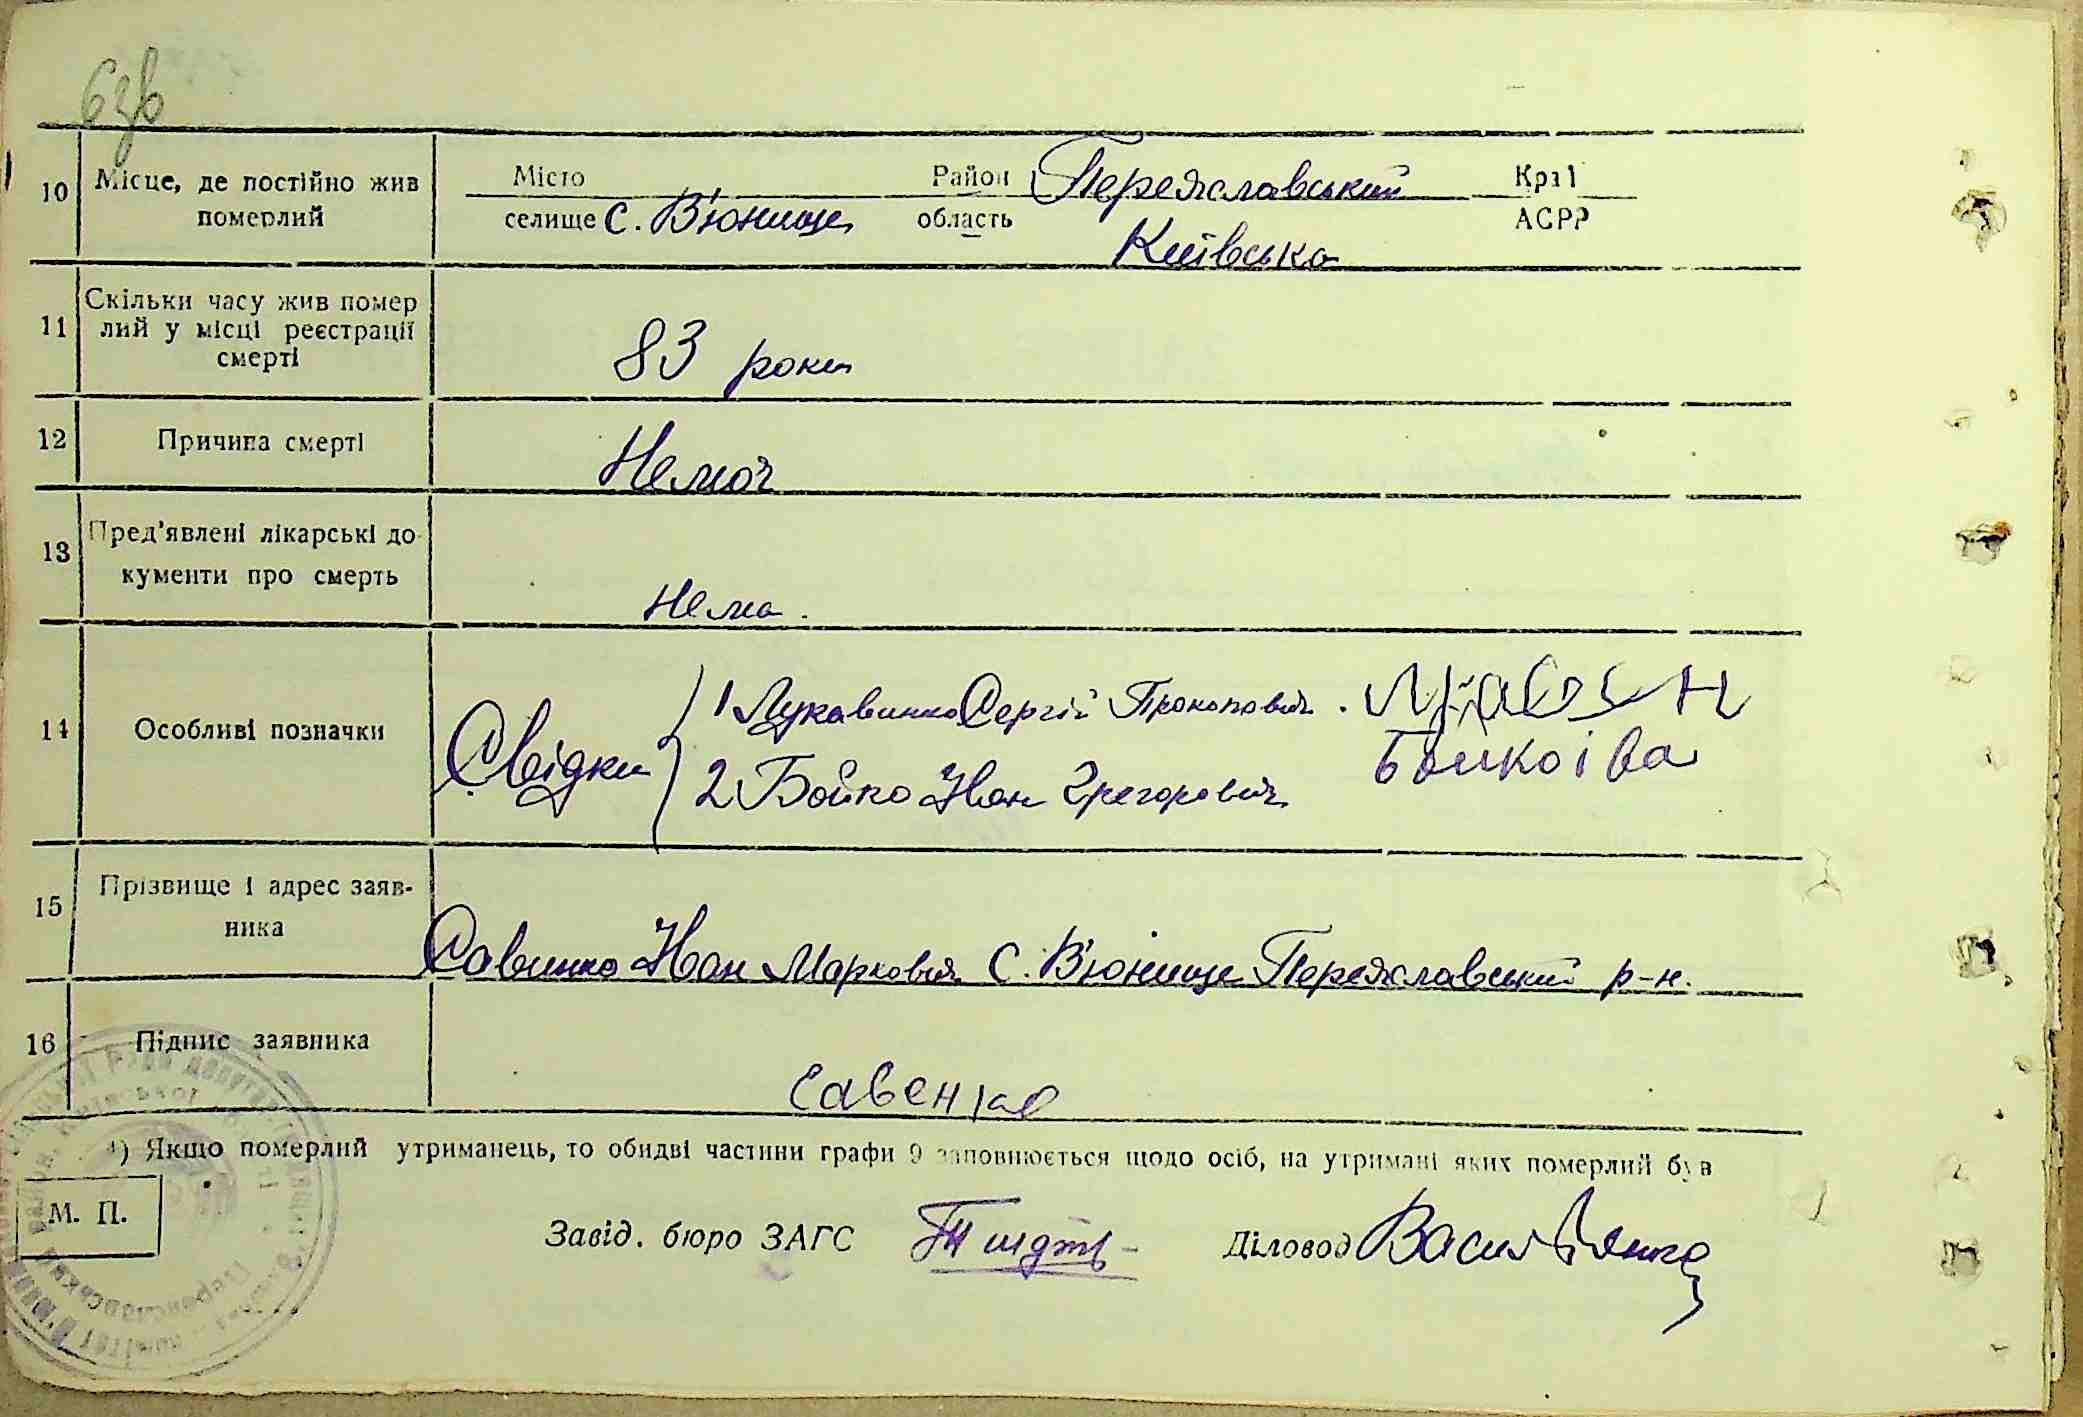 63в
10 Місце, де постійно жив Місто Район Переяславський Край
померлий селище с. В'юнище область Київська АСРР
11 Скільки часу жив помер
лий у місці реєстрації 83 роки
смерті
12 Причина смерті Немоч
13 Пред'явлені лікарські до-
кументи про смерть нема.
14 Особливі позначки Свідки
1 Лукавинко Сергій Прокопович.
2 Бойко Иван Грегорович Бойкоіва
15 Прізвище і адрес заяв-
ника
Савинко Иван Маркович с. В'юнище Переяславський р-н.
16 Підпис заявника
Савенко
¹) Якщо померлий утриманець, то обидві частини графи 9 заповнюється щодо осіб, на утримані яких померлий був
М. П.
Завід. бюро ЗАГС Діловод